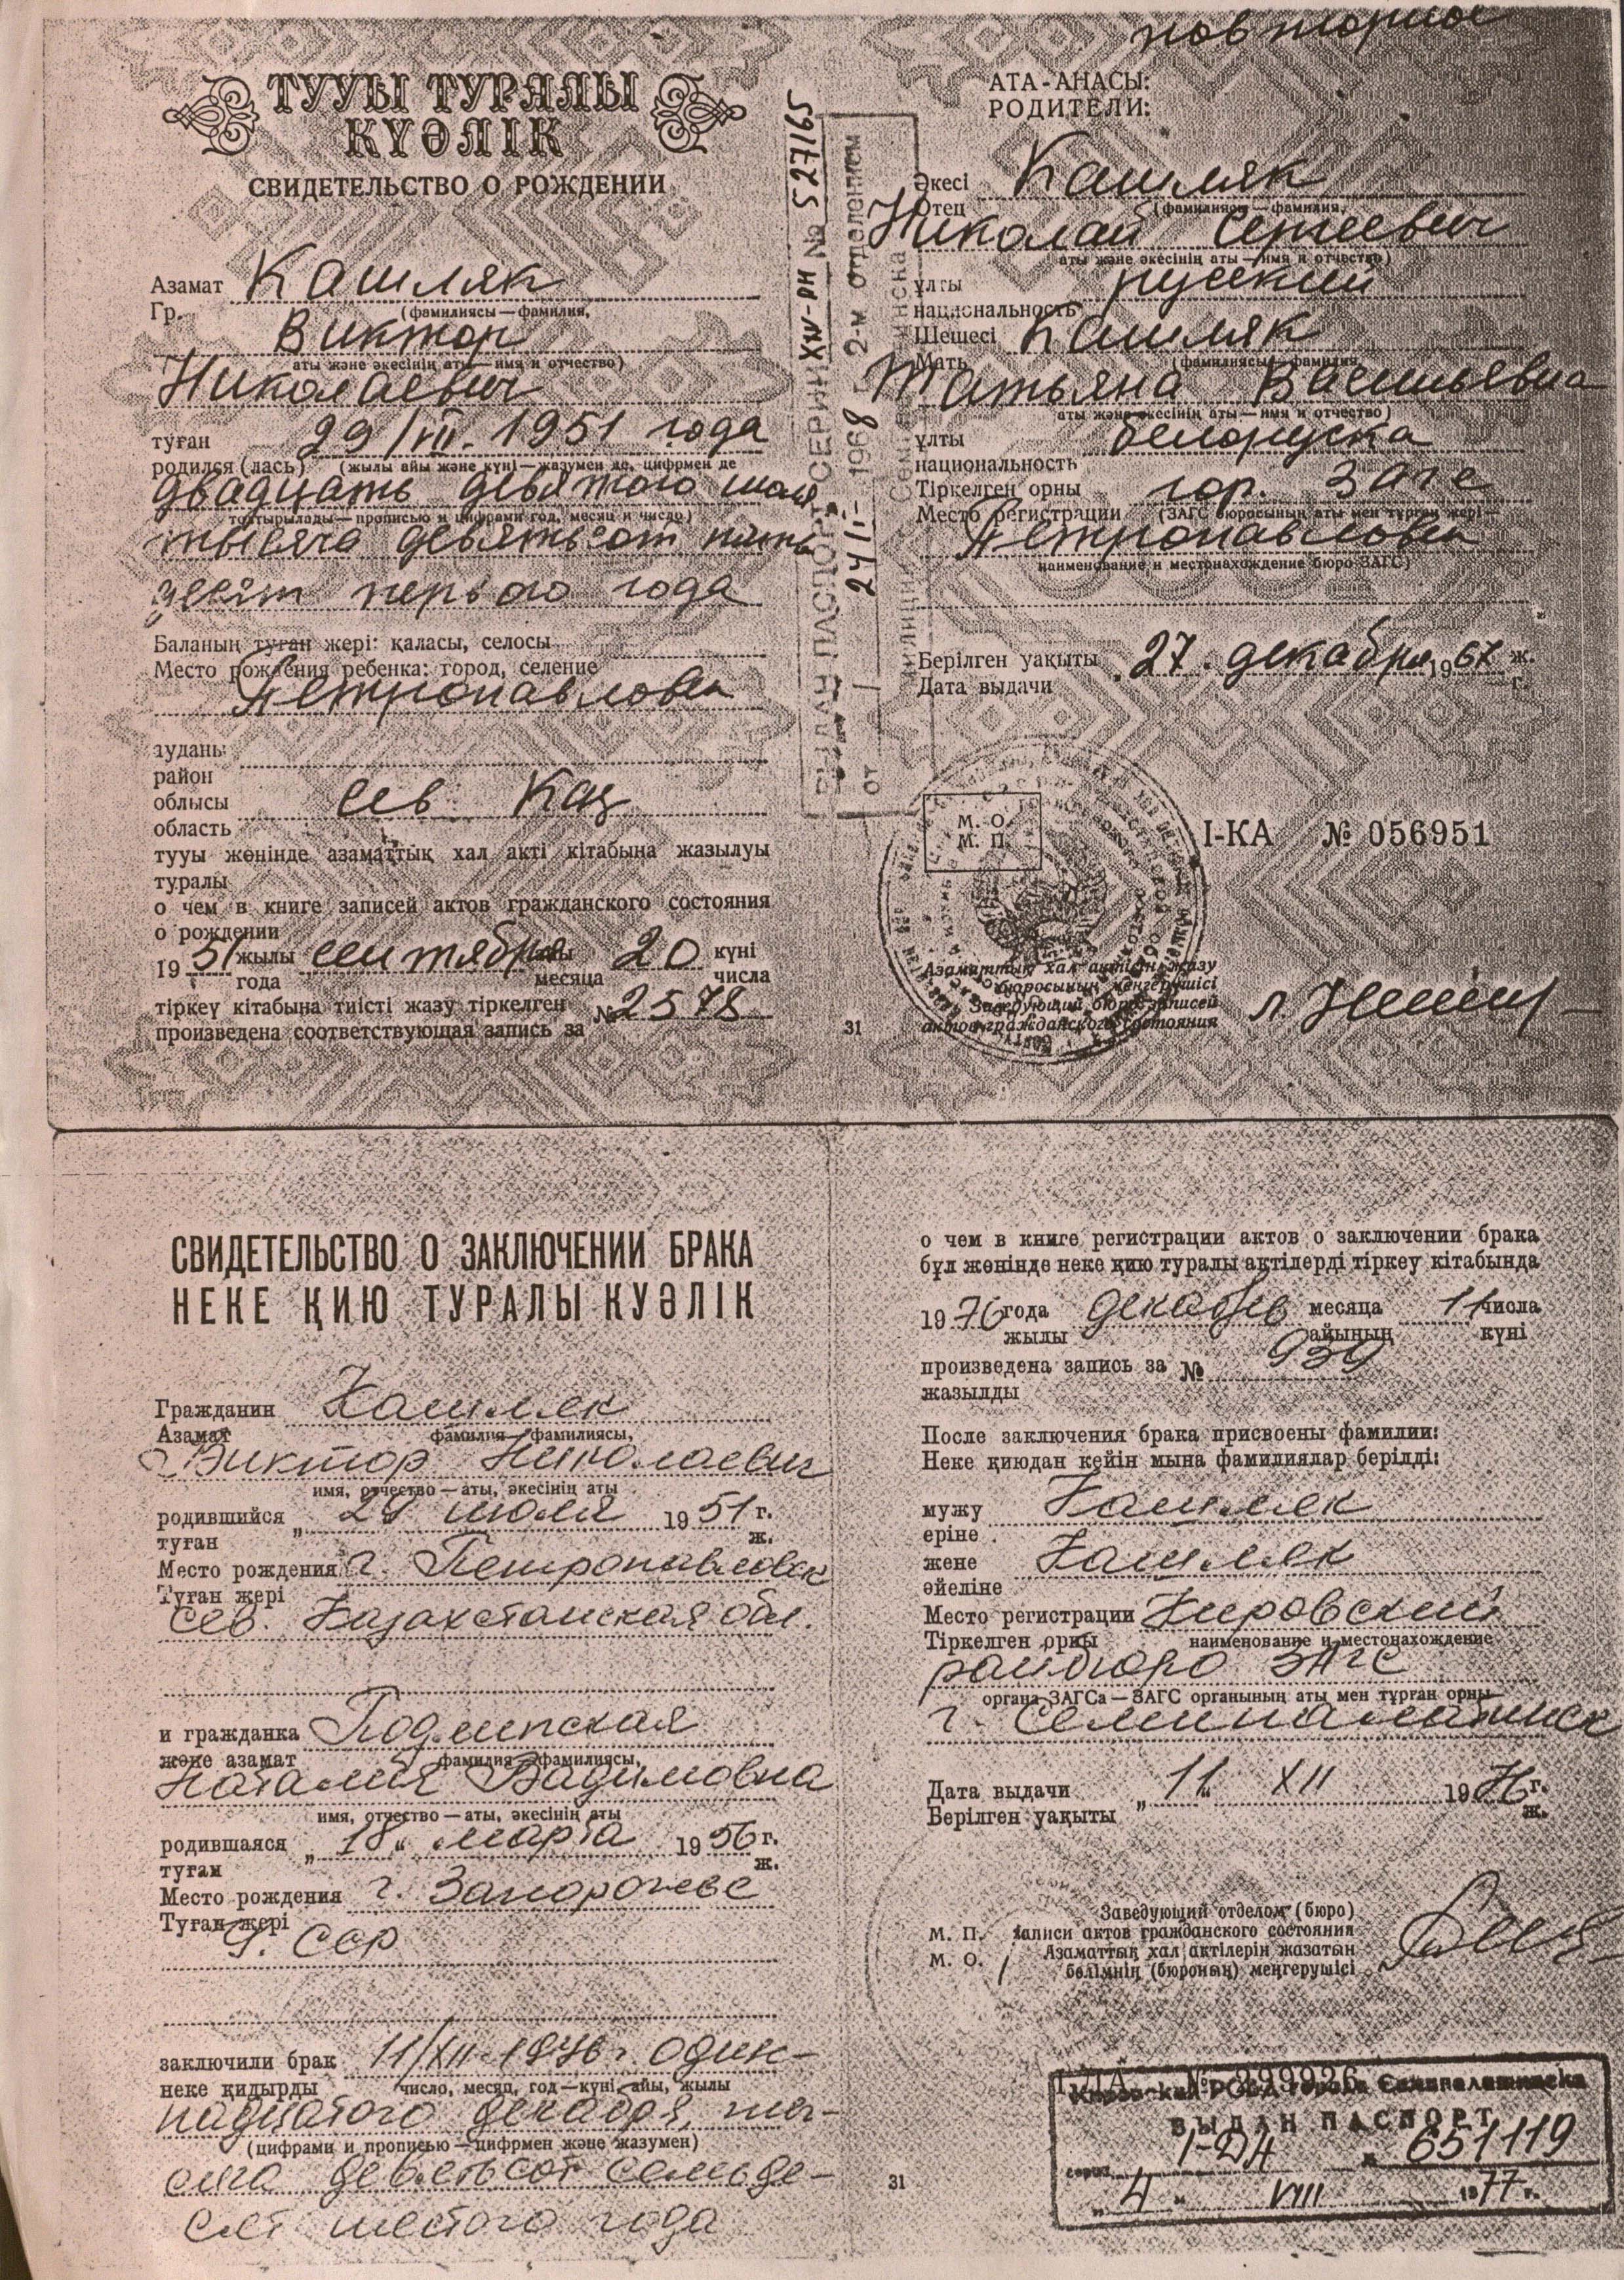 повторное
ТУУЫ ТУРАЛЫ
КУӘЛІК
СВИДЕТЕЛЬСТВО О РОЖДЕНИИ
Азамат Кашляк
Гр. (фамилиясы—фамилия,
Виктор
аты және әкесінің аты—имя и отчество)
Николаевич
туған 29/VII-1951 года
родился (лась) (жылы айы және күні—жазумен де, цифрмен де
двадцать девятого июля
толтырылады—прописью и цифрами год, месяц и число)
тысяча девятьсот пять
десят первого года
Баланың туған жері: қаласы, селосы
Место рождения ребенка: город, селение
Петропавловск
ауданы
район
облысы сев Каз
область
тууы жөнінде азаматтық хал акті кітабына жазылуы
туралы
о чем в книге записей актов гражданского состояния
о рождении
1951 жылы сентября айы 20 күні
года месяца числа
тіркеу кітабына тиісті жазу тіркелген № 2578
произведена соответствующая запись за
ВЫДАН ПАСПОРТ СЕРИИ XIV-РН № 527165
от 24/I- 1968 г. 2-м отделением
милиции
АТА-АНАСЫ:
РОДИТЕЛИ:
Әкесі Кашляк
Отец (фамилиясы—фамилия,
Николай Сергеевич
аты және әкесінің аты—имя и отчество)
ұлты русский
национальность
Шешесі Кашляк
Мать (фамилиясы—фамилия,
Татьяна Васильевна
аты және әкесінің аты—имя и отчество)
ұлты белоруска
национальность
Тіркелген орны гор. ЗАГС
Место регистрации (ЗАГС бюросының аты мен тұрған жері—
Петропавловск
наименование и местонахождение бюро ЗАГС)
Берілген уақыты 27. декабря 1967 ж.
Дата выдачи г.
М. О.
М. П.
I-КА № 056951
Азаматтық хал актісін жазу
бюросының меңгерушісі
Заведующий бюро записей
актов гражданского состояния
31
СВИДЕТЕЛЬСТВО О ЗАКЛЮЧЕНИИ БРАКА
НЕКЕ ҚИЮ ТУРАЛЫ КУӘЛІК
Гражданин Кашляк
Азамат фамилия—фамилиясы,
Виктор Николаевич
имя, отчество—аты, әкесінің аты
родившийся „ 29 июля 1951 г.
туған ж.
Место рождения г. Петропавловск
Туған жері
сев. Казахстанская обл.
и гражданка
және азамат фамилия—фамилиясы,
Наталия Вадимовна
имя, отчество—аты, әкесінің аты
родившаяся „ 18 “ марта 1956 г.
туған ж.
Место рождения г. Запорожье
Туған жері
У. ССР
заключили брак 11/XII-1976 г. один-
неке қидырды число, месяц, год—күні, айы, жылы
надцатого декабря, ты-
(цифрами и прописью—цифрмен және жазумен)
сяча девятьсот семьде-
сят шестого года
о чем в книге регистрации актов о заключении брака
бұл жөнінде неке қию туралы актілерді тіркеу кітабында
1976 года декабря месяца 11 числа
жылы айының күні
произведена запись за № 939
жазылды
После заключения брака присвоены фамилии:
Неке қиюдан кейін мына фамилиялар берілді:
мужу Кашляк
еріне
жене Кашляк
әйеліне
Место регистрации Кировский
Тіркелген орны наименование и местонахождение
райбюро ЗАГС
органа ЗАГСа—ЗАГС органының аты мен тұрған орны
г. Семипалатинск
Дата выдачи „ 11 “ XII 1976 г.
Берілген уақыты ж.
Заведующий отделом (бюро)
М. П. записи актов гражданского состояния
М. О. Азаматтық хал актілерін жазатын
бөлімнің (бюроның) меңгерушісі
Кировский РОВД города Семипалатинска
ВЫДАН ПАСПОРТ
серия № 651119
„ 4 “ VIII 1977 г.
31